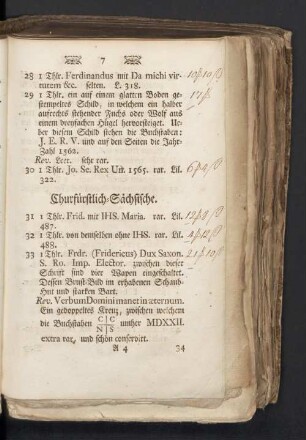 7
28 1 Thlr. Ferdinandus mit Da michi vir-
tutem &c. selten. L. 318.
29 1 Thlr. ein auf einem glatten Boden ge-
stempeltes Schild, in welchem ein halber
aufrechts stehender Fuchs oder Wolf aus
einem dreyfachen Hügel hervorsteiget. Ue-
ber diesem Schild stehen die Buchstaben:
J. E. R. V. und auf den Seiten die Jahr-
Zahl 1562.
Rev. Leer. sehr rar.
30 1 Thlr. Jo. Se. Rex Ur. 1565. rar. Lil.
322.
Churfürstlich-Sächsische.
31 1 Thlr. Frid. mit IHS. Maria. rar. Lil.
487.
32 1 Thlr. von demselben ohne IHS. rar. Lil.
488.
33 1 Thlr. Frdr. (Fridericus) Dux Saxon.
S. Ro. Imp. Elector. zwischen dieser
Schrift sind vier Wapen eingeschaltet.
Dessen Brust-Bild im erhabenen Schaub-
Hut und starken Bart.
Rev. Verbum Domini manet in æternum.
Ein gedoppeltes Kreuz, zwischen welchem
die Buchstaben C|C N|S umher MDXXII.
extra rar, und schön conservirt.
A 4 34